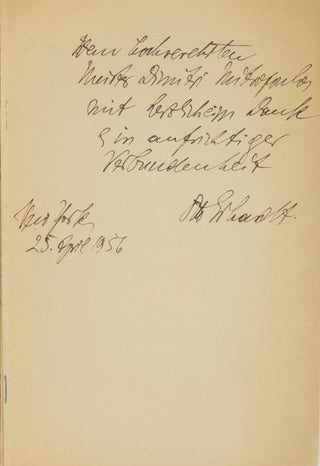 Dem hochverehrten
Meister Dimitri Mitropoulos
mit herzlichem Dank
& in aufrichtiger
Verbundenheit
Otto Erhardt.
New York
25. April 1956